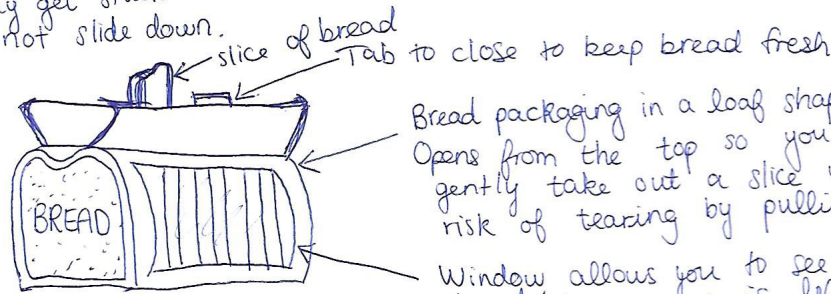 get
not slide down.
slice of bread
Tab to close to keep bread fresh
Bread packaging in a loaf
Opens from the top so you
gently take out a slice
risk of tearing by
BREAD
Window allows you to see